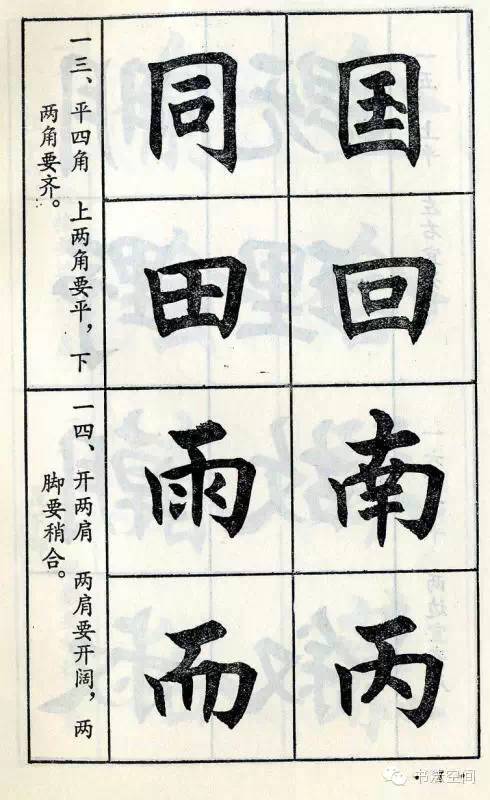 国
回
南
丙
同
田
雨
而
一三、平四角 上两角要平，下
两角要齐。
一四、开两肩 两肩要开阔，两
脚要稍合。